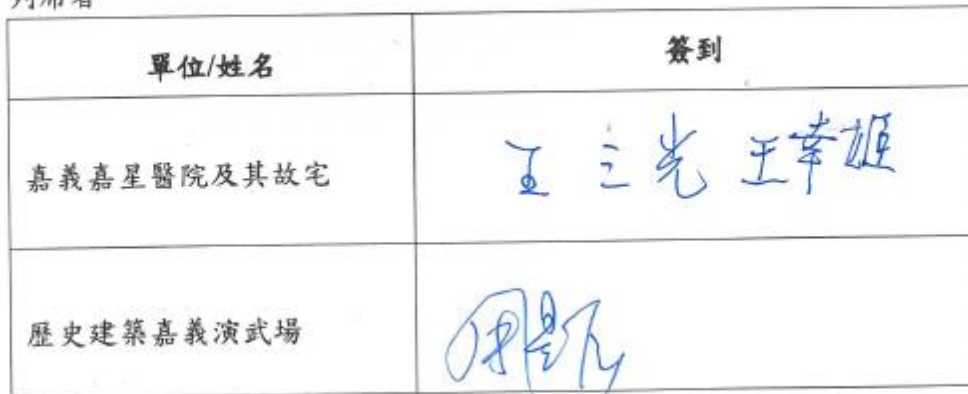 列席者
單位/姓名 簽到
嘉義嘉星醫院及其故宅 王三光 王幸雄
歷史建築嘉義演武場